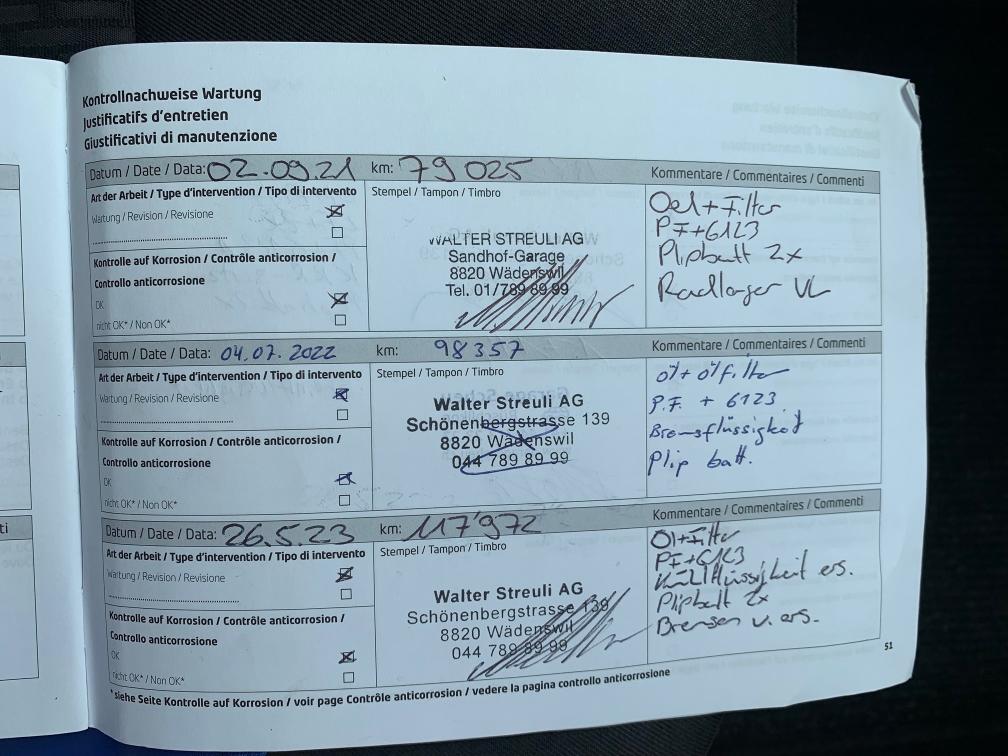 Kontrollnachweise Wartung
Justificatifs d'entretien
Giustificativi di manutenzione
Datum / Date / Data: 02.09.21 km: 79025 Kommentare / Commentaires / Commenti
Art der Arbeit / Type d'intervention / Tipo di intervento
Stempel / Tampon / Timbro
Wartung / Revision / Revisione
Kontrolle auf Korrosion / Contrôle anticorrosion /
Controllo anticorrosione
OK
nicht OK* / Non OK*
WALTER STREULI AG
Sandhof-Garage
8820 Wädenswil
Tel. 01/789 89 99
Oel + Filter
PF + 6123
Plipbatt 2x
Radlager VL
Datum / Date / Data: 04.07.2022 km: 98357 Kommentare / Commentaires / Commenti
Art der Arbeit / Type d'intervention / Tipo di intervento
Stempel / Tampon / Timbro
Wartung / Revision / Revisione
Kontrolle auf Korrosion / Contrôle anticorrosion /
Controllo anticorrosione
OK
nicht OK* / Non OK*
Walter Streuli AG
Schönenbergstrasse 139
8820 Wädenswil
044 789 89 99
öl + ölfilter
P.F. + 6123
Bremsflüssigkeit
Plip batt.
Datum / Date / Data: 26.5.23 km: 117'972 Kommentare / Commentaires / Commenti
Art der Arbeit / Type d'intervention / Tipo di intervento
Stempel / Tampon / Timbro
Wartung / Revision / Revisione
Kontrolle auf Korrosion / Contrôle anticorrosion /
Controllo anticorrosione
OK
nicht OK* / Non OK*
Walter Streuli AG
Schönenbergstrasse 139
8820 Wädenswil
044 789 89 99
Öl + Filter
PF + 6123
Kühlflüssigkeit ers.
Plipbatt 2x
Bremsen v. ers.
*siehe Seite Kontrolle auf Korrosion / voir page Contrôle anticorrosion / vedere la pagina controllo anticorrosione
51